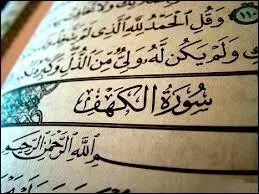 ١١٠ وَقُلِ الْحَمْدُ لِلَّهِ الَّذِي لَمْ
وَلَمْ يَكُن لَّهُ وَلِيٌّ مِّنَ الذُّلِّ وَكَبِّرْهُ
سُورَةُ الكَهْفِ
بِسْمِ اللَّهِ الرَّحْمَٰنِ الرَّحِيمِ